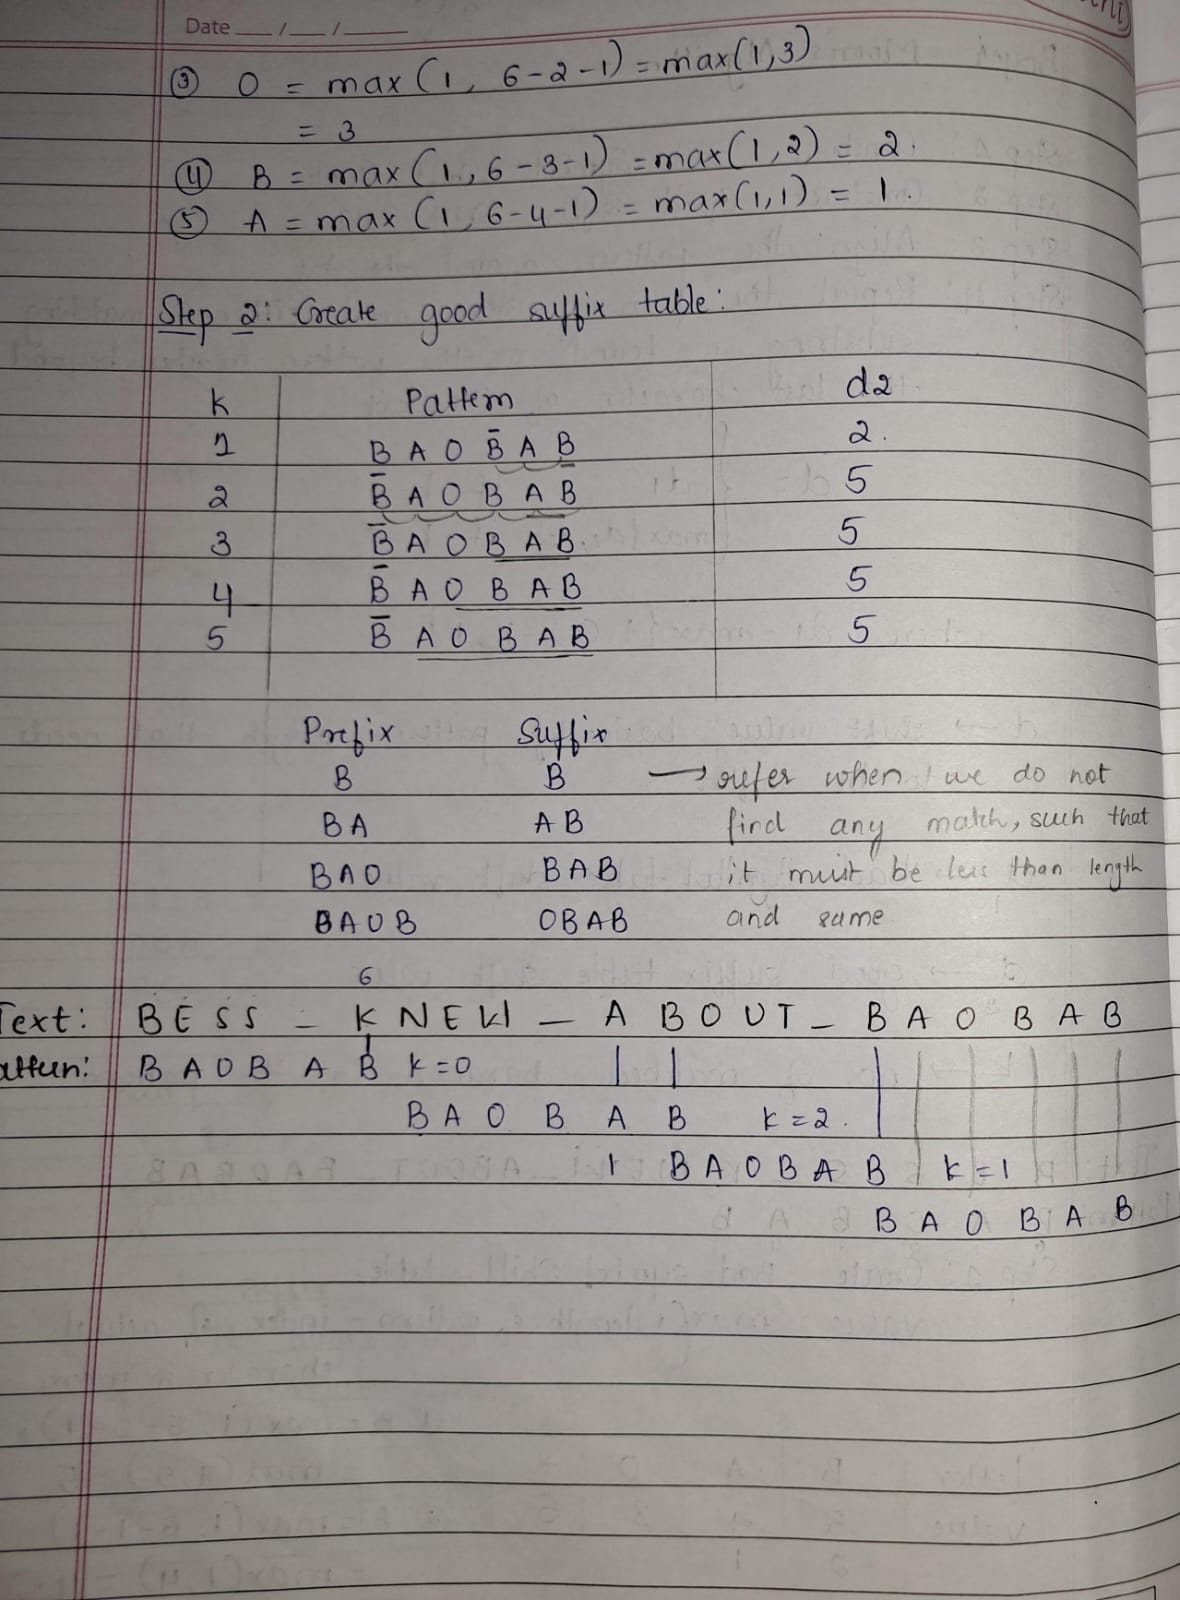 Date __/__/____
③ O = max (1, 6-2-1) = max(1,3)
= 3
④ B = max (1, 6-3-1) = max(1,2) = 2.
⑤ A = max (1, 6-4-1) = max(1,1) = 1.
Step 2: Create good suffix table:
k Pattern d2
1 B A O B̄ A B 2.
2 B̄ A O B A B 5
3 B̄ A O B A B 5
4 B̄ A O B A B 5
5 B̄ A O B A B 5
Prefix Suffix
B B → refer when we do not
BA AB find any match, such that
BAO BAB it must be less than length
BAOB OBAB and same
6
Text: B E S S _ K N E W _ A B O U T _ B A O B A B
attern: B A O B A B k=0
B A O B A B k=2.
B A O B A B k=1
B A O B A B